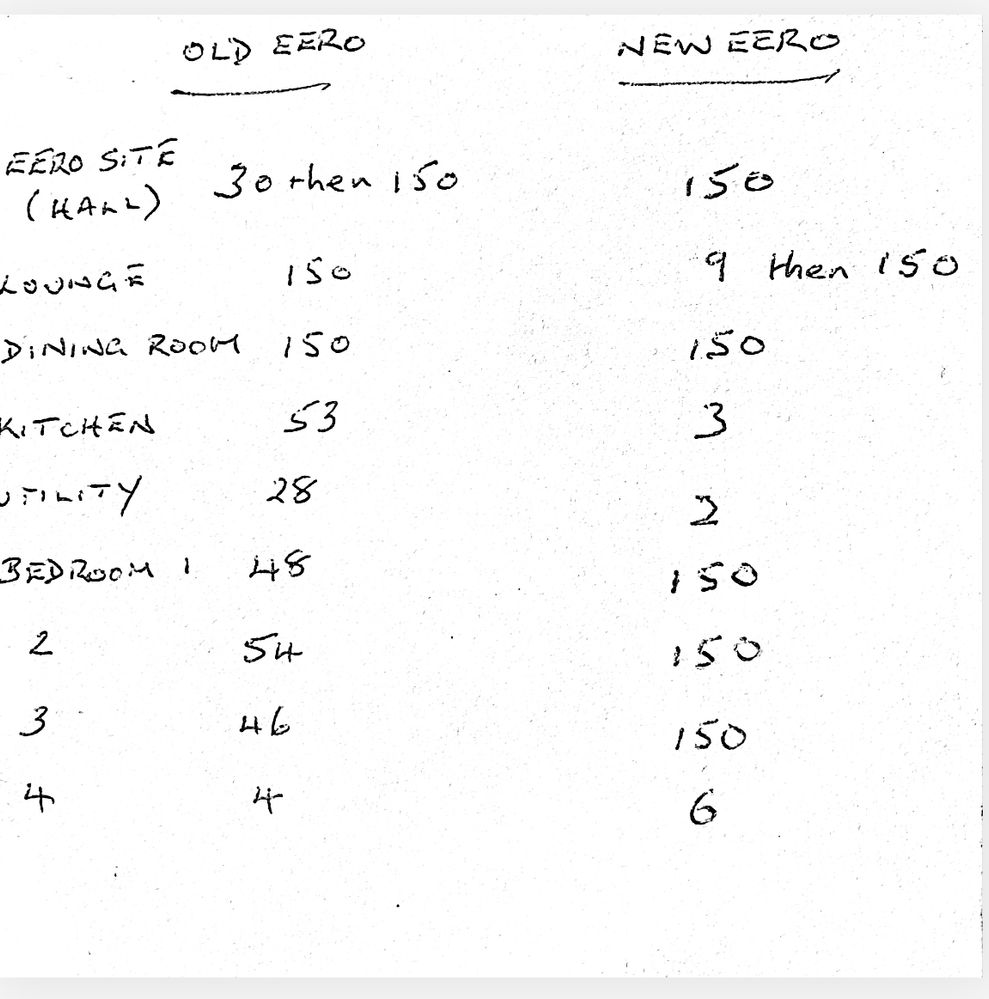 OLD EERO NEW EERO
EERO SITE
(HALL) 30 then 150 150
LOUNGE 150 9 then 150
DINING ROOM 150 150
KITCHEN 53 3
UTILITY 28 2
BEDROOM 1 48 150
2 54 150
3 46 150
4 4 6